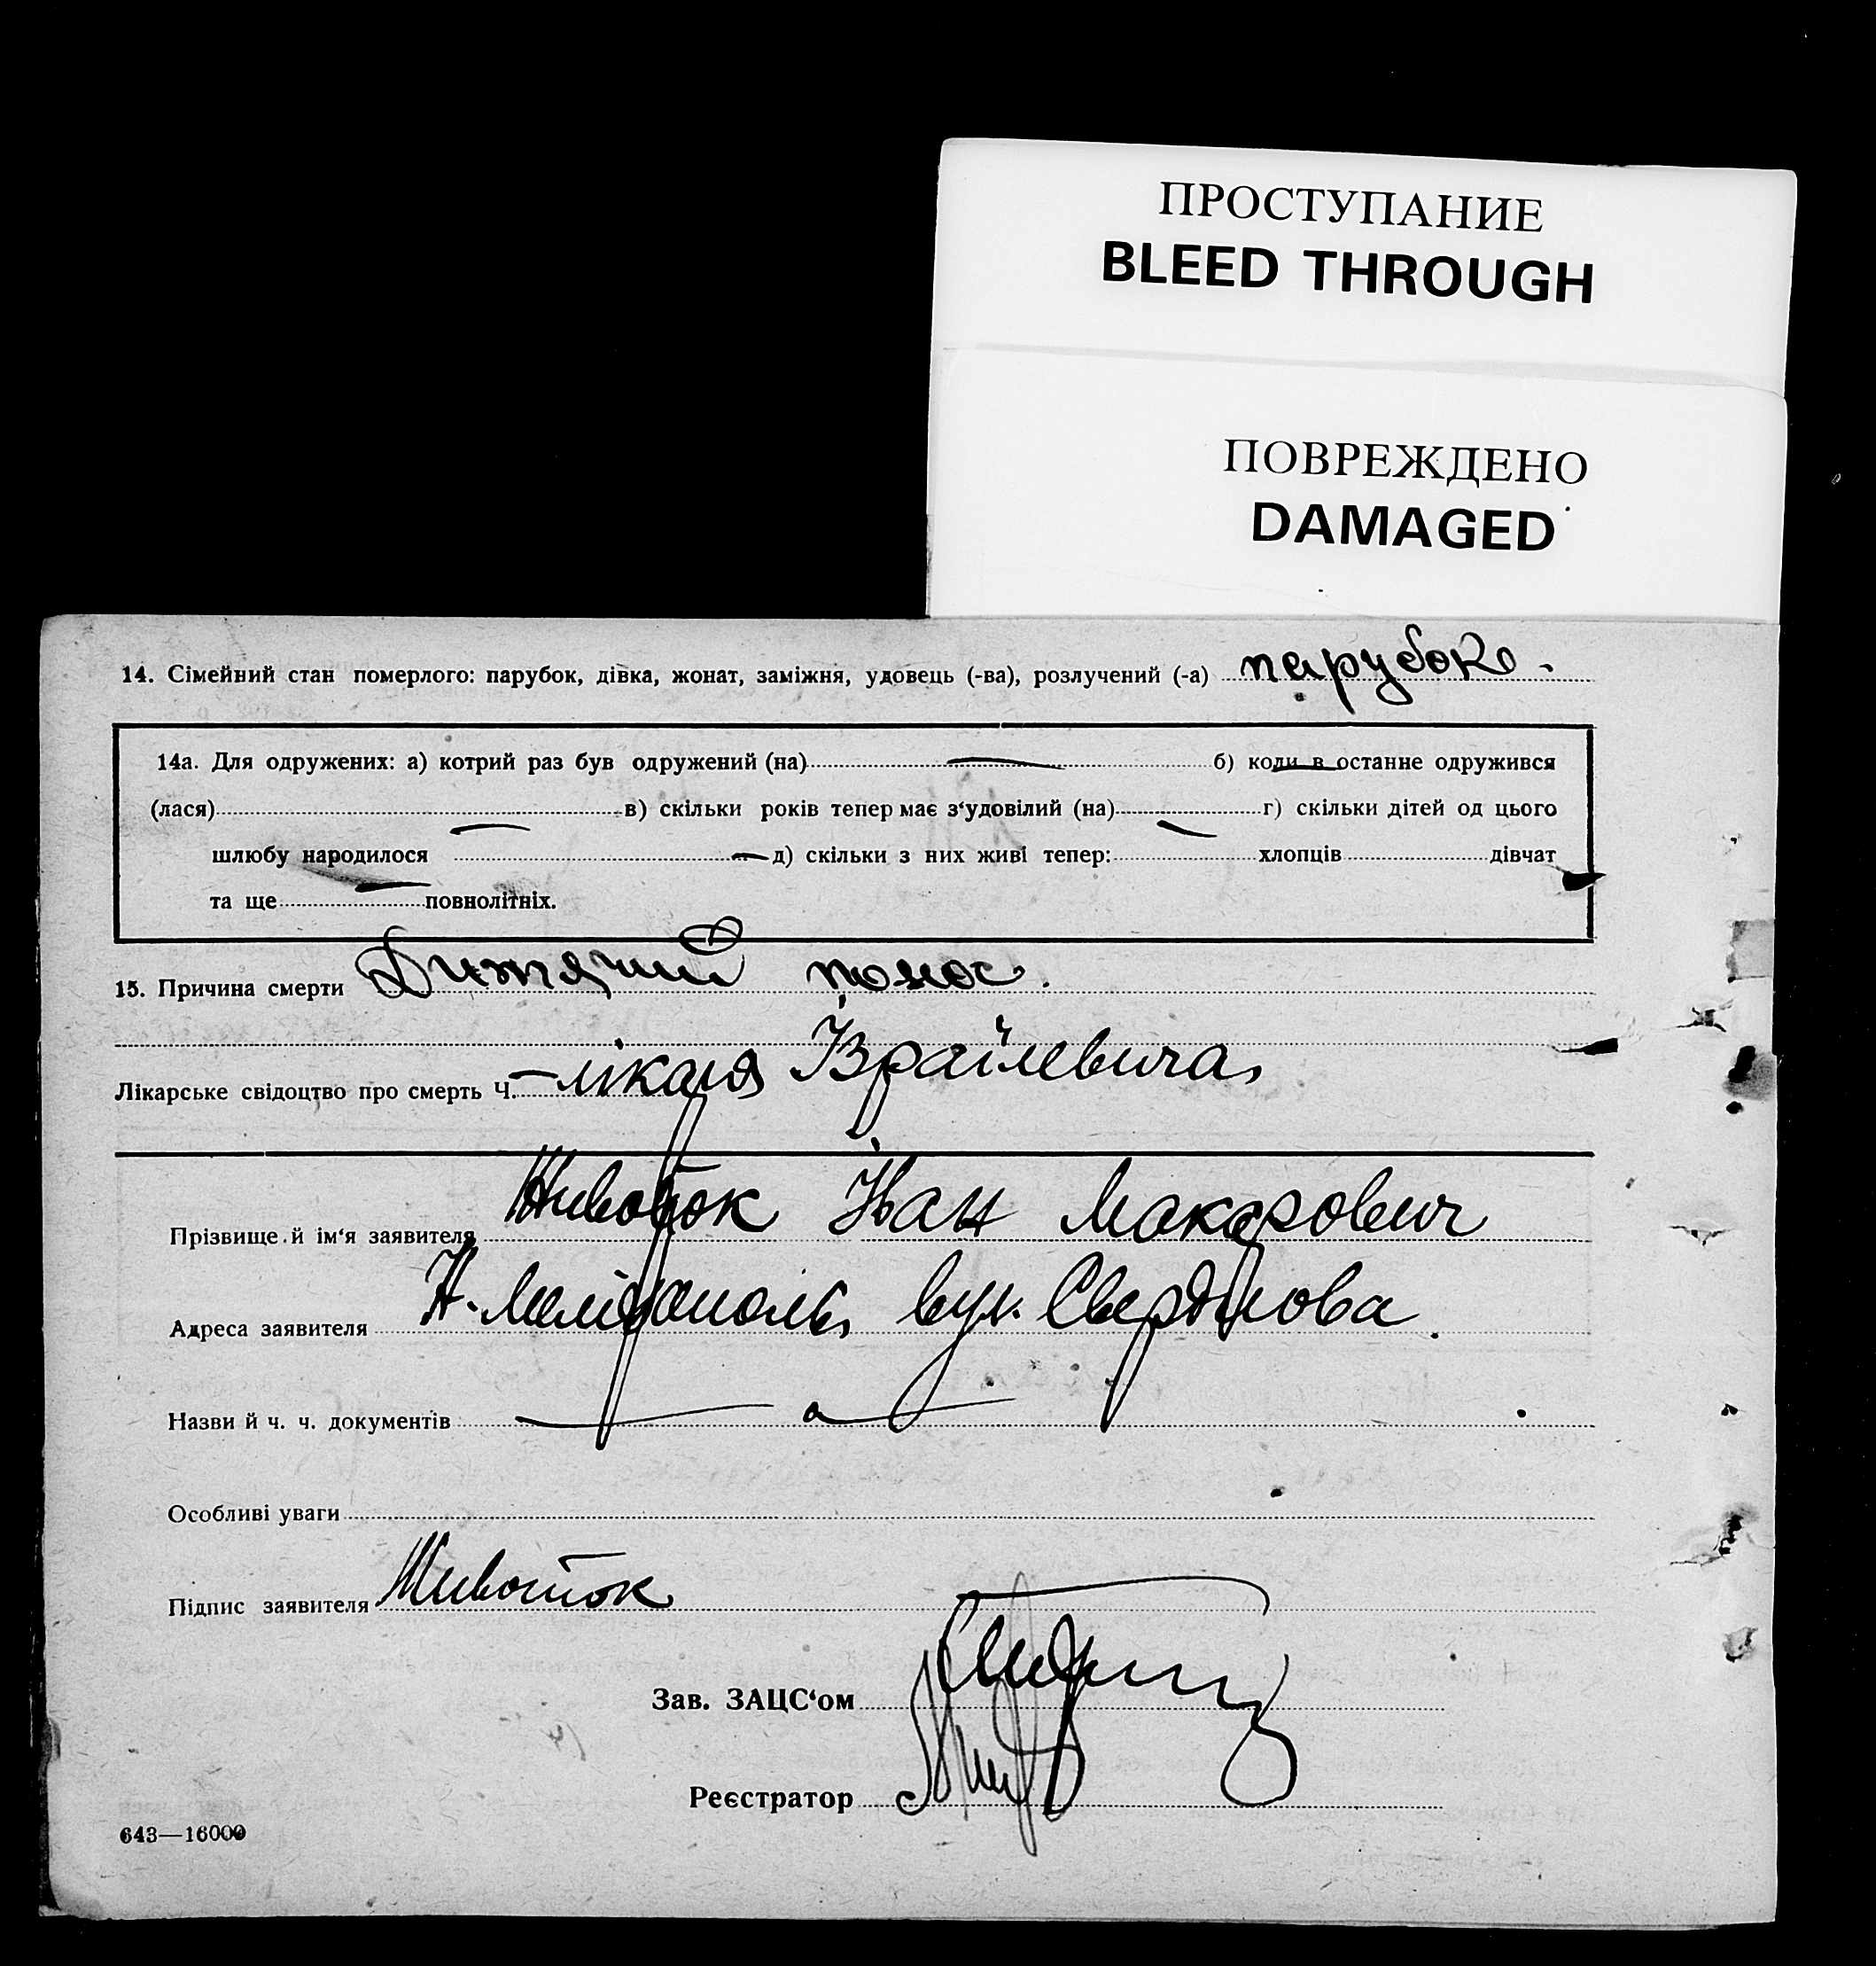 ПРОСТУПАНИЕ
BLEED THROUGH
ПОВРЕЖДЕНО
DAMAGED
14. Сімейний стан померлого: парубок, дівка, жонат, заміжня, удовець (-ва), розлучений (-а) парубок.
14а. Для одружених: а) котрий раз був одружений (на) — б) коли в останнє одружився
(лася) — в) скільки років тепер має з‘удовілий (на) — г) скільки дітей од цього
шлюбу народилося — д) скільки з них живі тепер: хлопців дівчат
та ще — повнолітніх.
15. Причина смерти Дитячий понос.
Лікарське свідоцтво про смерть Ч. — лікаря Ізраїлевича
Прізвище й ім‘я заявителя Животок Іван Макарович
Адреса заявителя Н-Мелітополь, вул. Свердлова.
Назви й ч. ч. документів
Особливі уваги
Підпис заявителя Животок
Зав. ЗАЦС‘ом
Реєстратор
643—16000